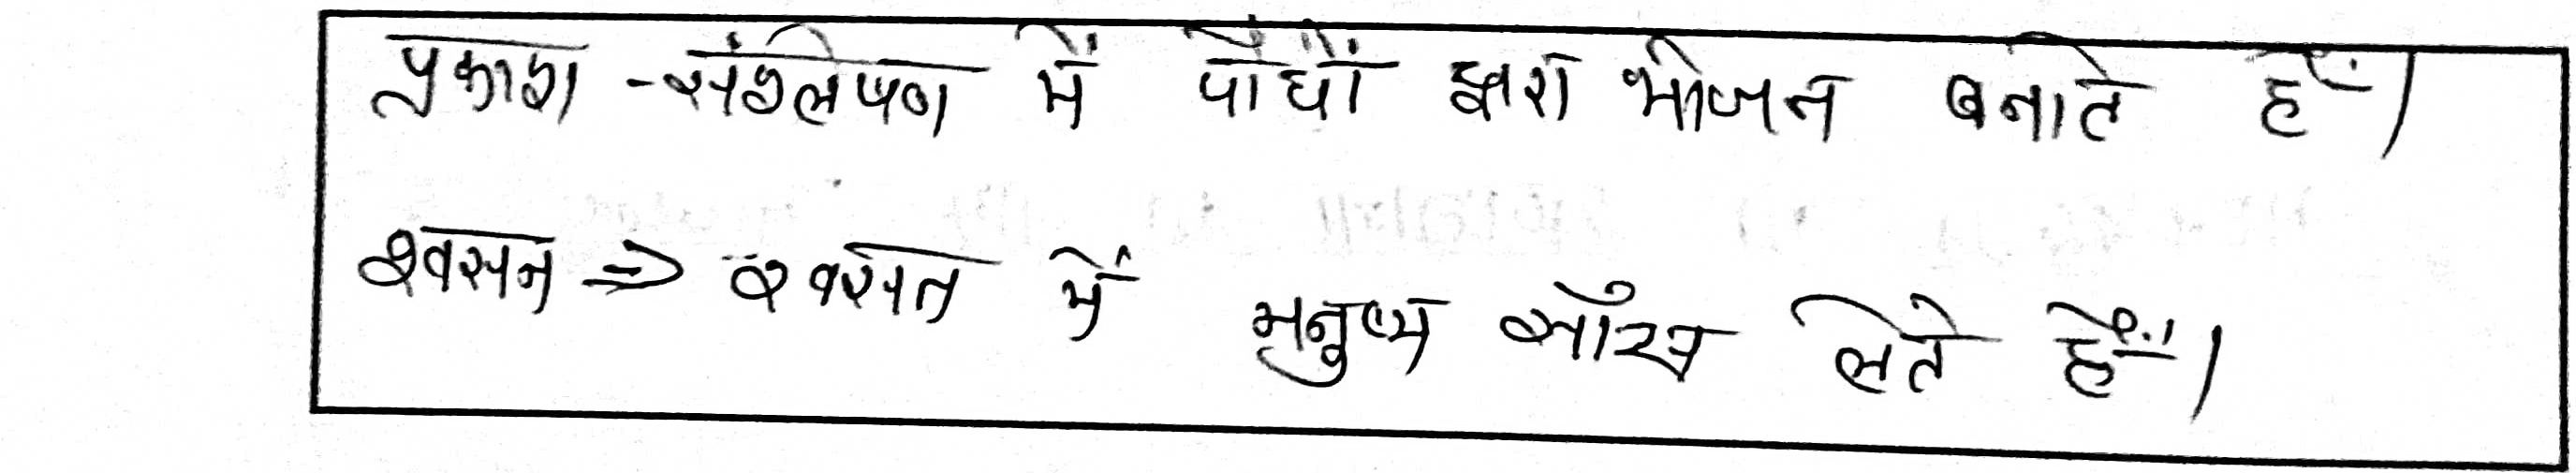 प्रकाश -संश्लेषण में पौधों द्वारा भोजन बनाते हैं।
श्वसन ⇒ श्वसन में मनुष्य साँस लेते हैं।